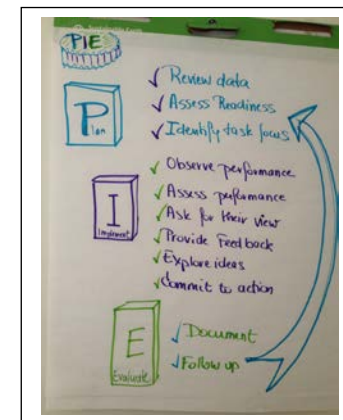 PIE
Plan
Review data
Assess Readiness
Identify task focus
Implement
Observe performance
Assess performance
Ask for their view
Provide Feedback
Explore ideas
Commit to action
Evaluate
Document
Follow up